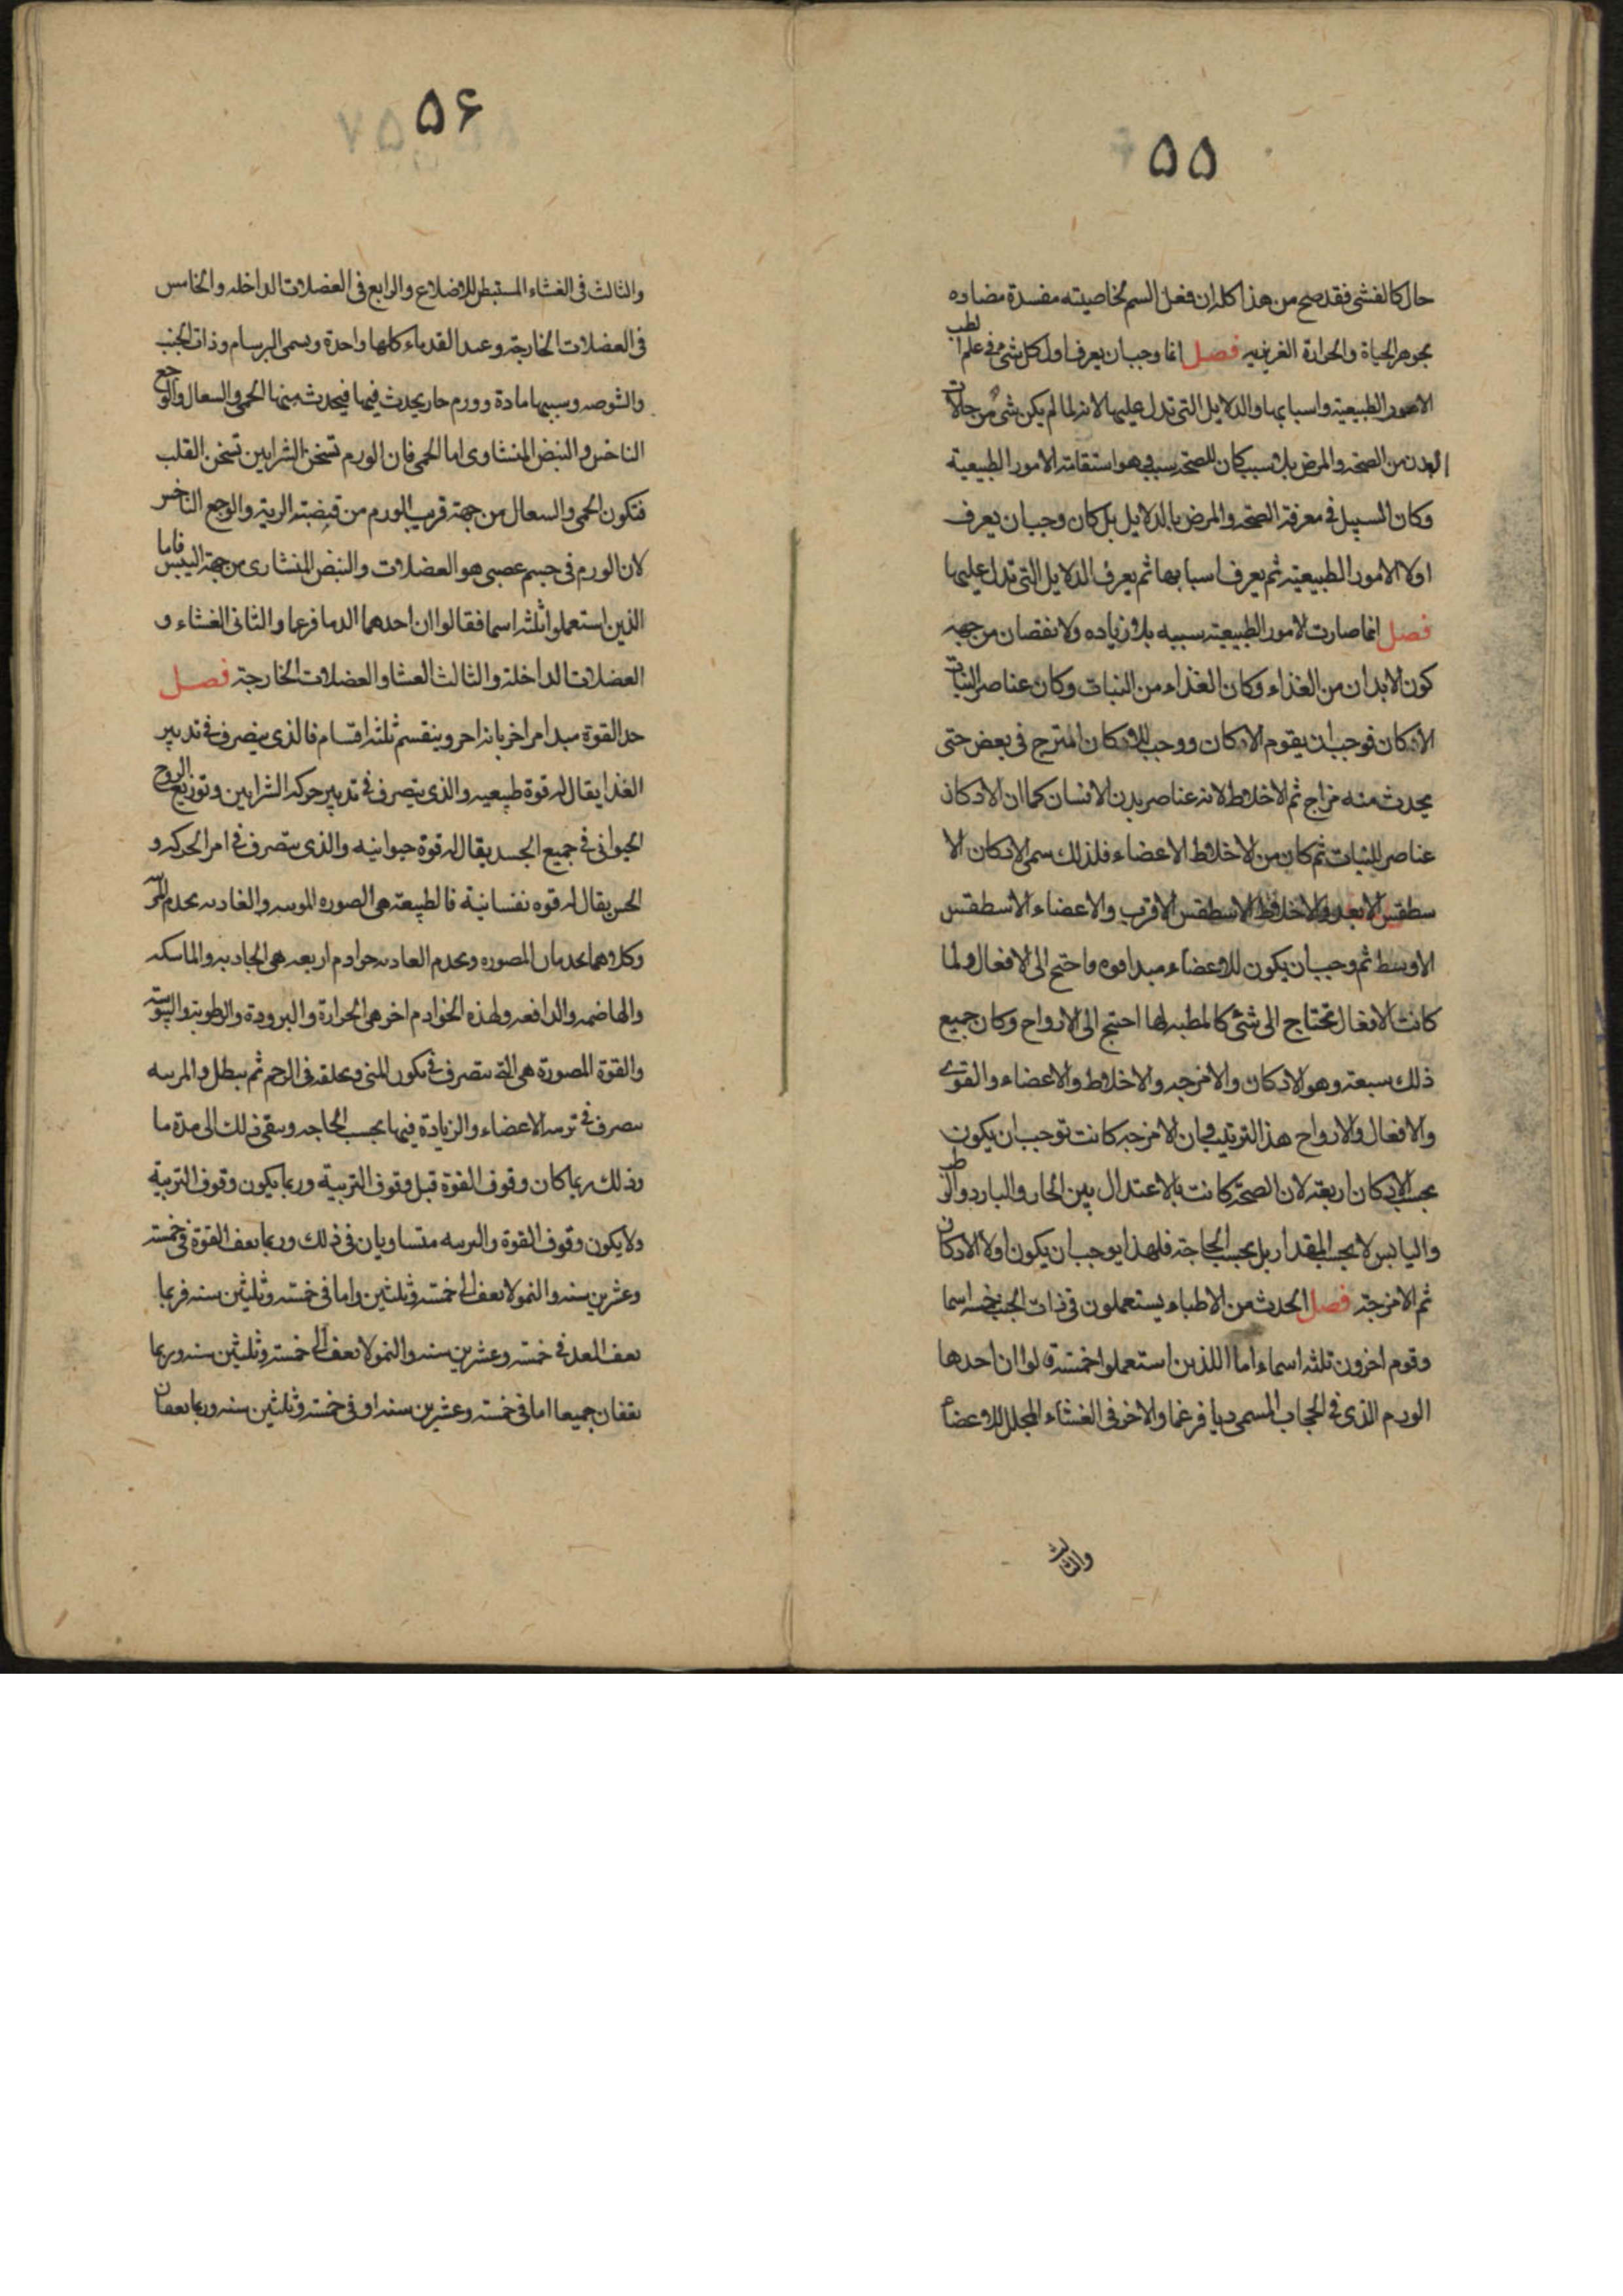 ۵۵
حال كالغشى فقد صح من هذا كله ان فعل السم بخاصيته مفسدة مضاده
بجوهر الحياة والحرارة الغريزيه فصل انما وجب ان يعرف اول كل شئ فى علم الطب
الامور الطبيعية واسبابها والدلايل التى تدل عليها لانه لما لم يكن شئ من حالات
البدن من الصحه والمرض بلا سبب كان للصحه سبب هو استقامة الامور الطبيعية
وكان السبيل فى معرفة الصحه والمرض بالدلايل بل كان وجب ان يعرف
اولا الامور الطبيعية ثم يعرف اسبابها ثم يعرف الدلايل التى تدل عليها
فصل انما صارت الامور الطبيعية سبيه بلا زياده ولا نقصان من جهه
كون الابدان من الغذاء وكان الغذاء من النبات وكان عناصر النبات
الاركان فوجب ان يقوم الاركان ووجب للاركان المتزج فى بعض حتى
يحدث منه مزاج ثم الاخلاط لانه عناصر بدن الانسان كما ان الاركان
عناصر النبات ثم كان من الاخلاط الاعضاء فلذلك سمى الاركان الا
سطقس الابعد والاخلاط الاسطقس الاقرب والاعضاء الاسطقس
الاوسط ثم وجب ان يكون للاعضاء مبدا قوه واحتج الى الافعال ولما
كانت الافعال تحتاج الى شئ كالمطيه لها احتيج الى الارواح وكان جميع
ذلك سبعة وهو الاركان والامزجه والاخلاط والاعضاء والقوى
والافعال والارواح هذ الترتيب فان الامزجه كانت توجب ان يكون
بحسب الاركان اربعة لان الصحة كانت بالاعتدال بين الحار والبارد والرطب
واليابس لا بحسب المقدار بل بحسب الحاجة فلهذا يوجب ان يكون اولا الاركان
ثم الامزجة فصل الحدث من الاطباء يستعملون فى ذات الجنب خمسه اسما
وقوم اخرون ثلثه اسماء اما اللذين استعملوا خمسة قالوا ان احدها
الورم الذى فى الحجاب المسمى ديافرغما والاخر فى الغشاء المجلل للاعضاء
والثالث
۵۶
والثالث فى الغشاء المستبطن للاضلاع والرابع فى العضلات الداخله والخامس
فى العضلات الخارجة وعند القدماء كلها واحدة ويسمى البرسام وذات الجنب
والشوصه وسببها مادة وورم حار يحدث فيها فيحدث منها الحمى والسعال والوجع
الناخس والنبض المنشاوى اما الحمى فان الورم تسخن الشرايين تسخن القلب
فتكون الحمى والسعال من جهة قرب الورم من قصبته الرية والوجع الناخس
لان الورم فى جسم عصبى هو العضلات والنبض المنشارى من جهة اليبس فاما
الذين استعملوا ثلثه اسما فقالوا ان احدهما الدىافرغما والثانى الغشاء و
العضلات الداخلة والثالث الغشا والعضلات الخارجة فصل
حد القوة مبدا امر اخر بانه اخر وينقسم ثلثه اقسام فالذى يتصرف فى تدبير
الغذا يقال له قوة طبيعيه والذى يتصرف فى تدبير حركه الشرايين وتوزيع الروح
الحيوانى فى جميع الجسد يقال له قوة حيوانيه والذى يتصرف فى امر الحركه و
الحس يقال له قوه نفسانية فالطبيعة هى الصوره المربيه والغاديه يخدم
وكلاهما يخدمان المصوره ويخدم الغاديه خوادم اربعه هى الجاذبه والماسكه
والهاضمه والدافعه ولهذه الخوادم اخر هى الحرارة والبرودة والرطوبة واليبوسة
والقوة المصورة هى التى يتصرف فى تكون المنى وتخلقه فى الرحم ثم يبطل والمربيه
يتصرف فى تربيه الاعضاء والزيادة فيها بحسب الحاجه ويبقى ذلك الى مدة ما
وذلك ربما كان وقوف القوة قبل وقوف التربية وربما يكون وقوف التربية
ولا يكون وقوف القوة والتربيه متساويان فى ذلك وربما يقف القوة فى خمسة
وعشرين سنه والنمو لا يقف الى خمسة وثلثين واما فى خمسه وثلثين سنه فربما
يقف العد فى خمسة وعشرين سنه والنمو لا يقف الى خمسة وثلثين سنه وربما
يقفان جميعا اما فى خمسة وعشرين سنه او فى خمسة وثلثين سنه وربما يقفان